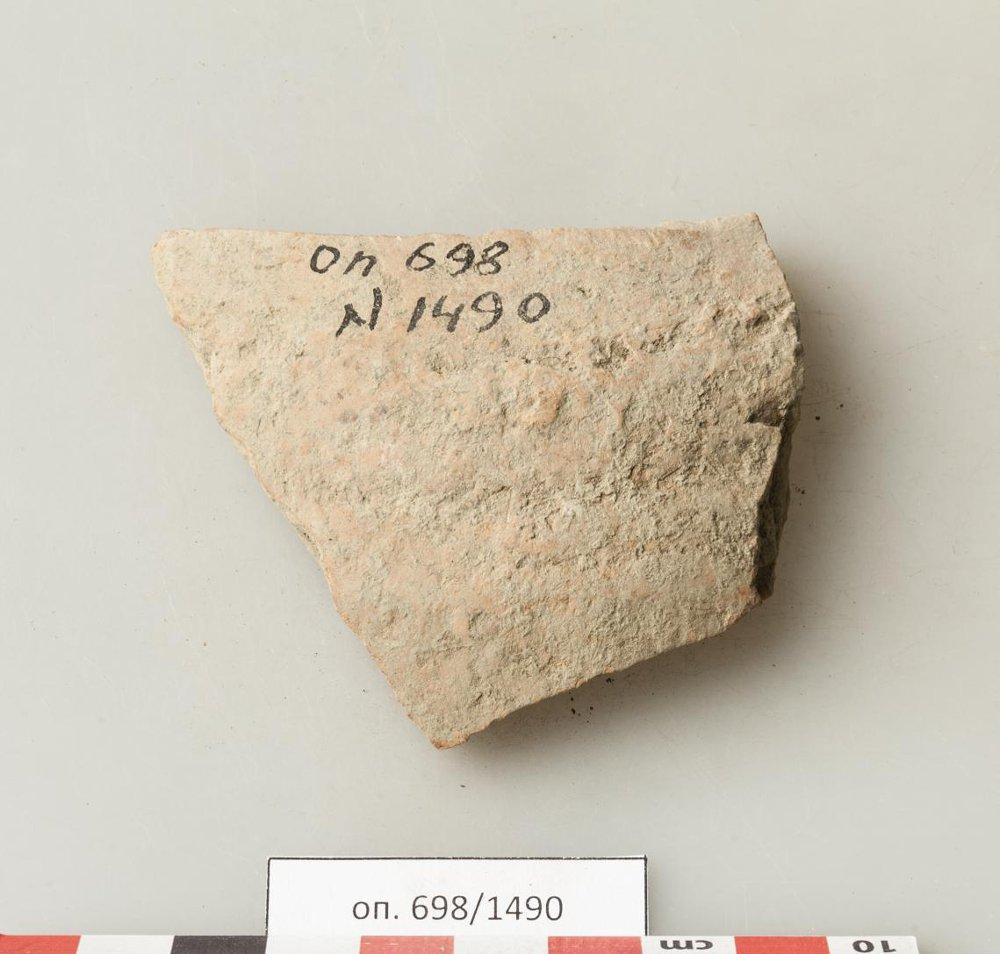 оп 698
N 1490
оп. 698/1490
cm 10